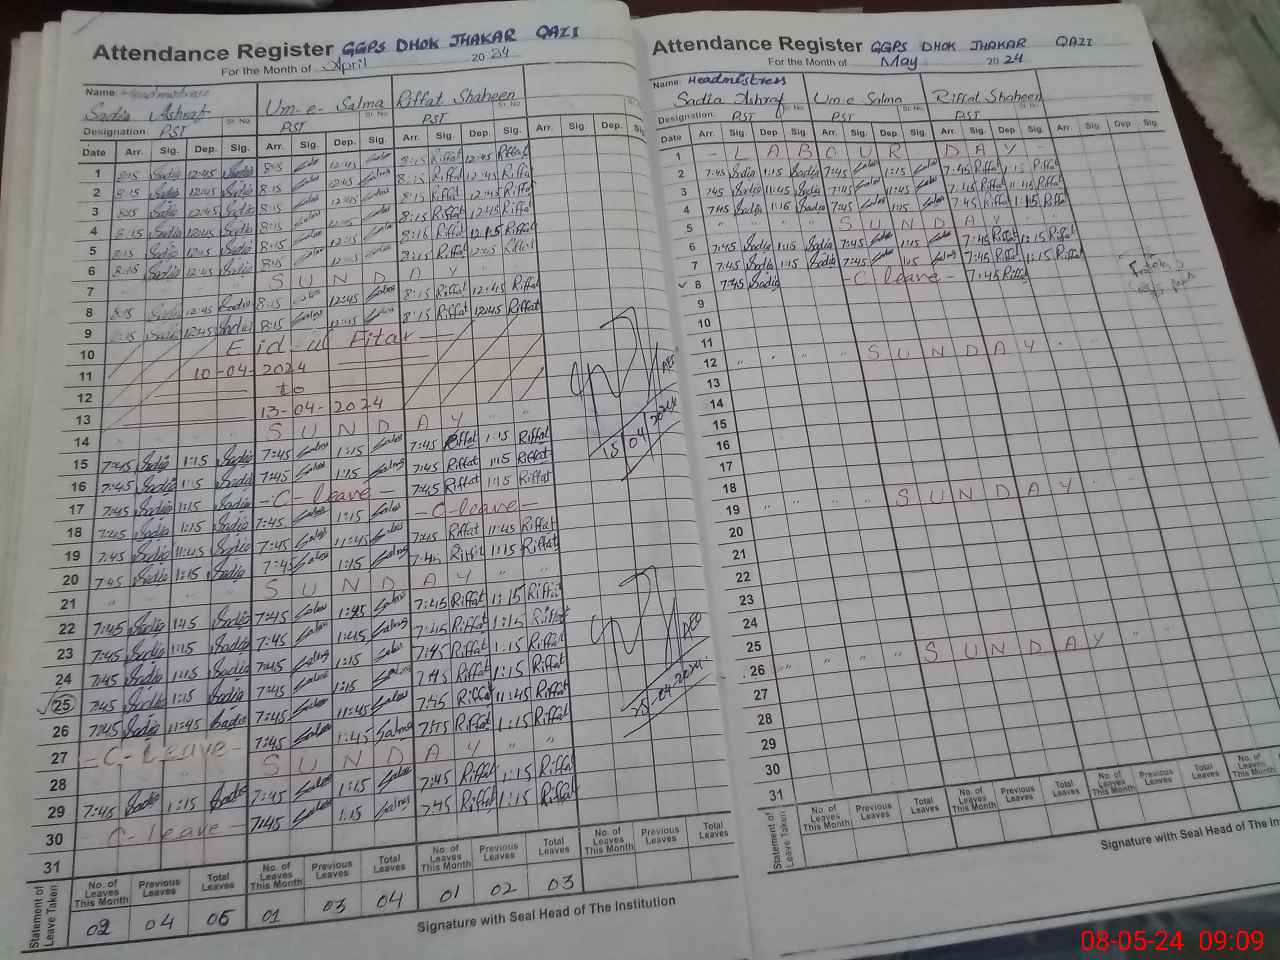 Attendance Register GGPS DHOK JHAKAR QAZI
For the Month of April 2024
Name: Headmistress
Sadia Ashraf Sr. No Um-e-Salma Sr. No Riffat Shaheen Sr. No
Designation: PST PST PST
Date Arr. Sig. Dep. Sig. Arr. Sig. Dep. Sig. Arr. Sig. Dep. Sig. Arr. Sig. Dep. Sig.
1 8:15 Sadia 12:45 Sadia 8:15 Salma 12:45 Salma 8:15 Riffat 12:45 Riffat
2 8:15 Sadia 12:45 Sadia 8:15 Salma 12:45 Salma 8:15 Riffat 12:45 Riffat
3 8:15 Sadia 12:45 Sadia 8:15 Salma 12:45 Salma 8:15 Riffat 12:45 Riffat
4 8:15 Sadia 12:45 Sadia 8:15 Salma 12:45 Salma 8:15 Riffat 12:45 Riffat
5 8:15 Sadia 12:15 Sadia 8:15 Salma 12:15 Salma 8:15 Riffat 12:15 Riffat
6 8:15 Sadia 12:45 Sadia 8:15 Salma 12:45 Salma 8:15 Riffat 12:45 Riffat
7 SUNDAY
8 8:15 Sadia 12:45 Sadia 8:15 Salma 12:45 Salma 8:15 Riffat 12:45 Riffat
9 8:15 Sadia 12:45 Sadia 8:15 Salma 12:45 Salma 8:15 Riffat 12:45 Riffat
10 Eid ul Fitar
11 10-04-2024
12 to
13 13-04-2024
14 SUNDAY
15 7:45 Sadia 1:15 Sadia 7:45 Salma 1:15 Salma 7:45 Riffat 1:15 Riffat
16 7:45 Sadia 1:15 Sadia 7:45 Salma 1:15 Salma 7:45 Riffat 1:15 Riffat
17 7:45 Sadia 1:15 Sadia -C-leave- 7:45 Riffat 1:15 Riffat
18 7:45 Sadia 1:15 Sadia 7:45 Salma 1:15 Salma -C-leave-
19 7:45 Sadia 11:45 Sadia 7:45 Salma 11:45 Salma 7:45 Riffat 11:45 Riffat
20 7:45 Sadia 1:15 Sadia 7:45 Salma 1:15 Salma 7:45 Riffat 1:15 Riffat
21 SUNDAY
22 7:45 Sadia 1:15 Sadia 7:45 Salma Salma 7:45 Riffat 1:15 Riffat
23 7:45 Sadia 1:15 Sadia 7:45 Salma Salma 7:45 Riffat 1:15 Riffat
24 7:45 Sadia 1:15 Sadia 7:45 Salma 1:15 Salma 7:45 Riffat 1:15 Riffat
25 7:45 Sadia 1:15 Sadia 7:45 Salma 1:15 Salma 7:45 Riffat 1:15 Riffat
26 7:45 Sadia 11:45 Sadia 7:45 Salma 11:45 Salma 7:45 Riffat 11:45 Riffat
27 -C-Leave- 7:45 Salma 1:45 Salma 7:45 Riffat 1:15 Riffat
28 SUNDAY
29 7:45 Sadia 1:15 Sadia 7:45 Salma 1:15 Salma 7:45 Riffat 1:15 Riffat
30 C-leave- 7:45 Salma 1:15 Salma 7:45 Riffat 1:15 Riffat
31
AEO
15/04/2024
AEO
25-04-2024
Statement of Leave Taken
No. of Leaves This Month Previous Leaves Total Leaves No. of Leaves This Month Previous Leaves Total Leaves No. of Leaves This Month Previous Leaves Total Leaves No. of Leaves This Month Previous Leaves Total Leaves
02 04 06 01 03 04 01 02 03
Signature with Seal Head of The Institution
Attendance Register GGPS DHOK JHAKAR QAZI
For the Month of May 2024
Name: Headmistress
Sadia Ashraf Sr. No Um-e-Salma Sr. No Riffat Shaheen
Designation: PST PST PST
Date Arr. Sig. Dep. Sig. Arr. Sig. Dep. Sig. Arr. Sig. Dep. Sig. Arr. Sig. Dep Sig.
1 -LABOUR DAY-
2 7:45 Sadia 1:15 Sadia 7:45 Salma 1:15 Salma 7:45 Riffat 1:15 Riffat
3 7:45 Sadia 11:45 Sadia 7:45 Salma 11:45 Salma 7:45 Riffat 11:45 Riffat
4 7:45 Sadia 1:15 Sadia 7:45 Salma 1:15 Salma 7:45 Riffat 1:15 Riffat
5 SUNDAY
6 7:45 Sadia 1:15 Sadia 7:45 Salma 1:15 Salma 7:45 Riffat 1:15 Riffat
7 7:45 Sadia 1:15 Sadia 7:45 Salma 1:15 Salma 7:45 Riffat 1:15 Riffat
8 7:45 Sadia -C leave- 7:45 Riffat
9
10
11
12 SUNDAY
13
14
15
16
17
18
19 SUNDAY
20
21
22
23
24
25
26 SUNDAY
27
28
29
30
31
Statement of Leave Taken
No. of Leaves This Month Previous Leaves Total Leaves No. of Leaves This Month Previous Leaves Total Leaves No. of Leaves This Month Previous Leaves Total Leaves No. of Leaves This
Signature with Seal Head of The In
08-05-24 09:09